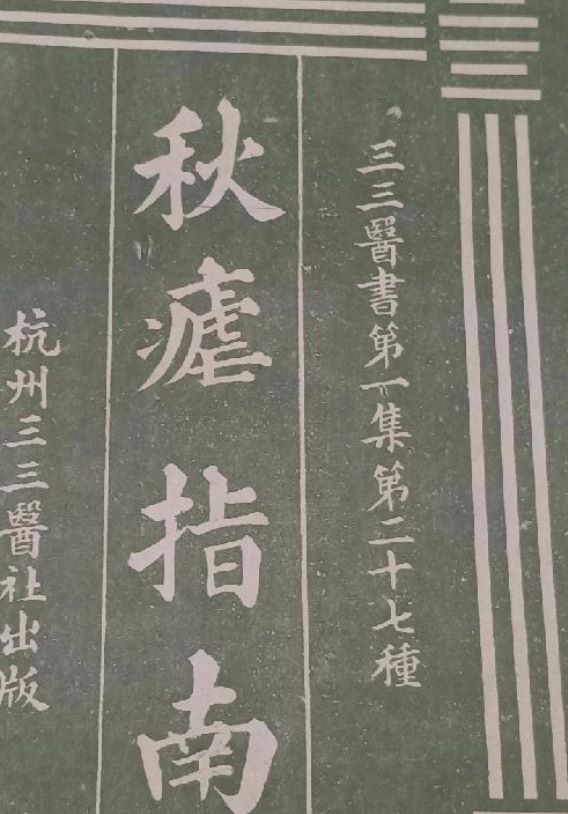 三三醫書第一集第二十七種
秋瘧指南
杭州三三醫社出版